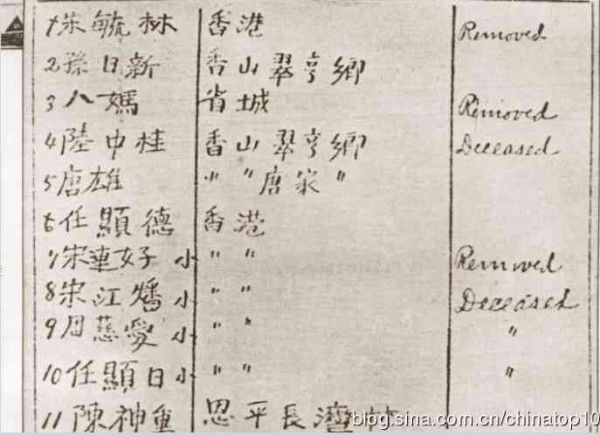 1 朱毓林 香港 Removed
2 孫日新 香山翠亨鄉
3 八媽 省城 Removed
4 陸中桂 香山翠亨鄉 Deceased
5 唐雄 〃 〃 唐家 〃
6 任顯德 香港
7 宋連好 小 〃 〃 Removed
8 宋江燔 小 〃 〃 Deceased
9 周慈愛 小 〃 〃 〃
10 任顯日 小 〃 〃 〃
11 陳神 恩平長灣
blog.sina.com.cn/chinatop10